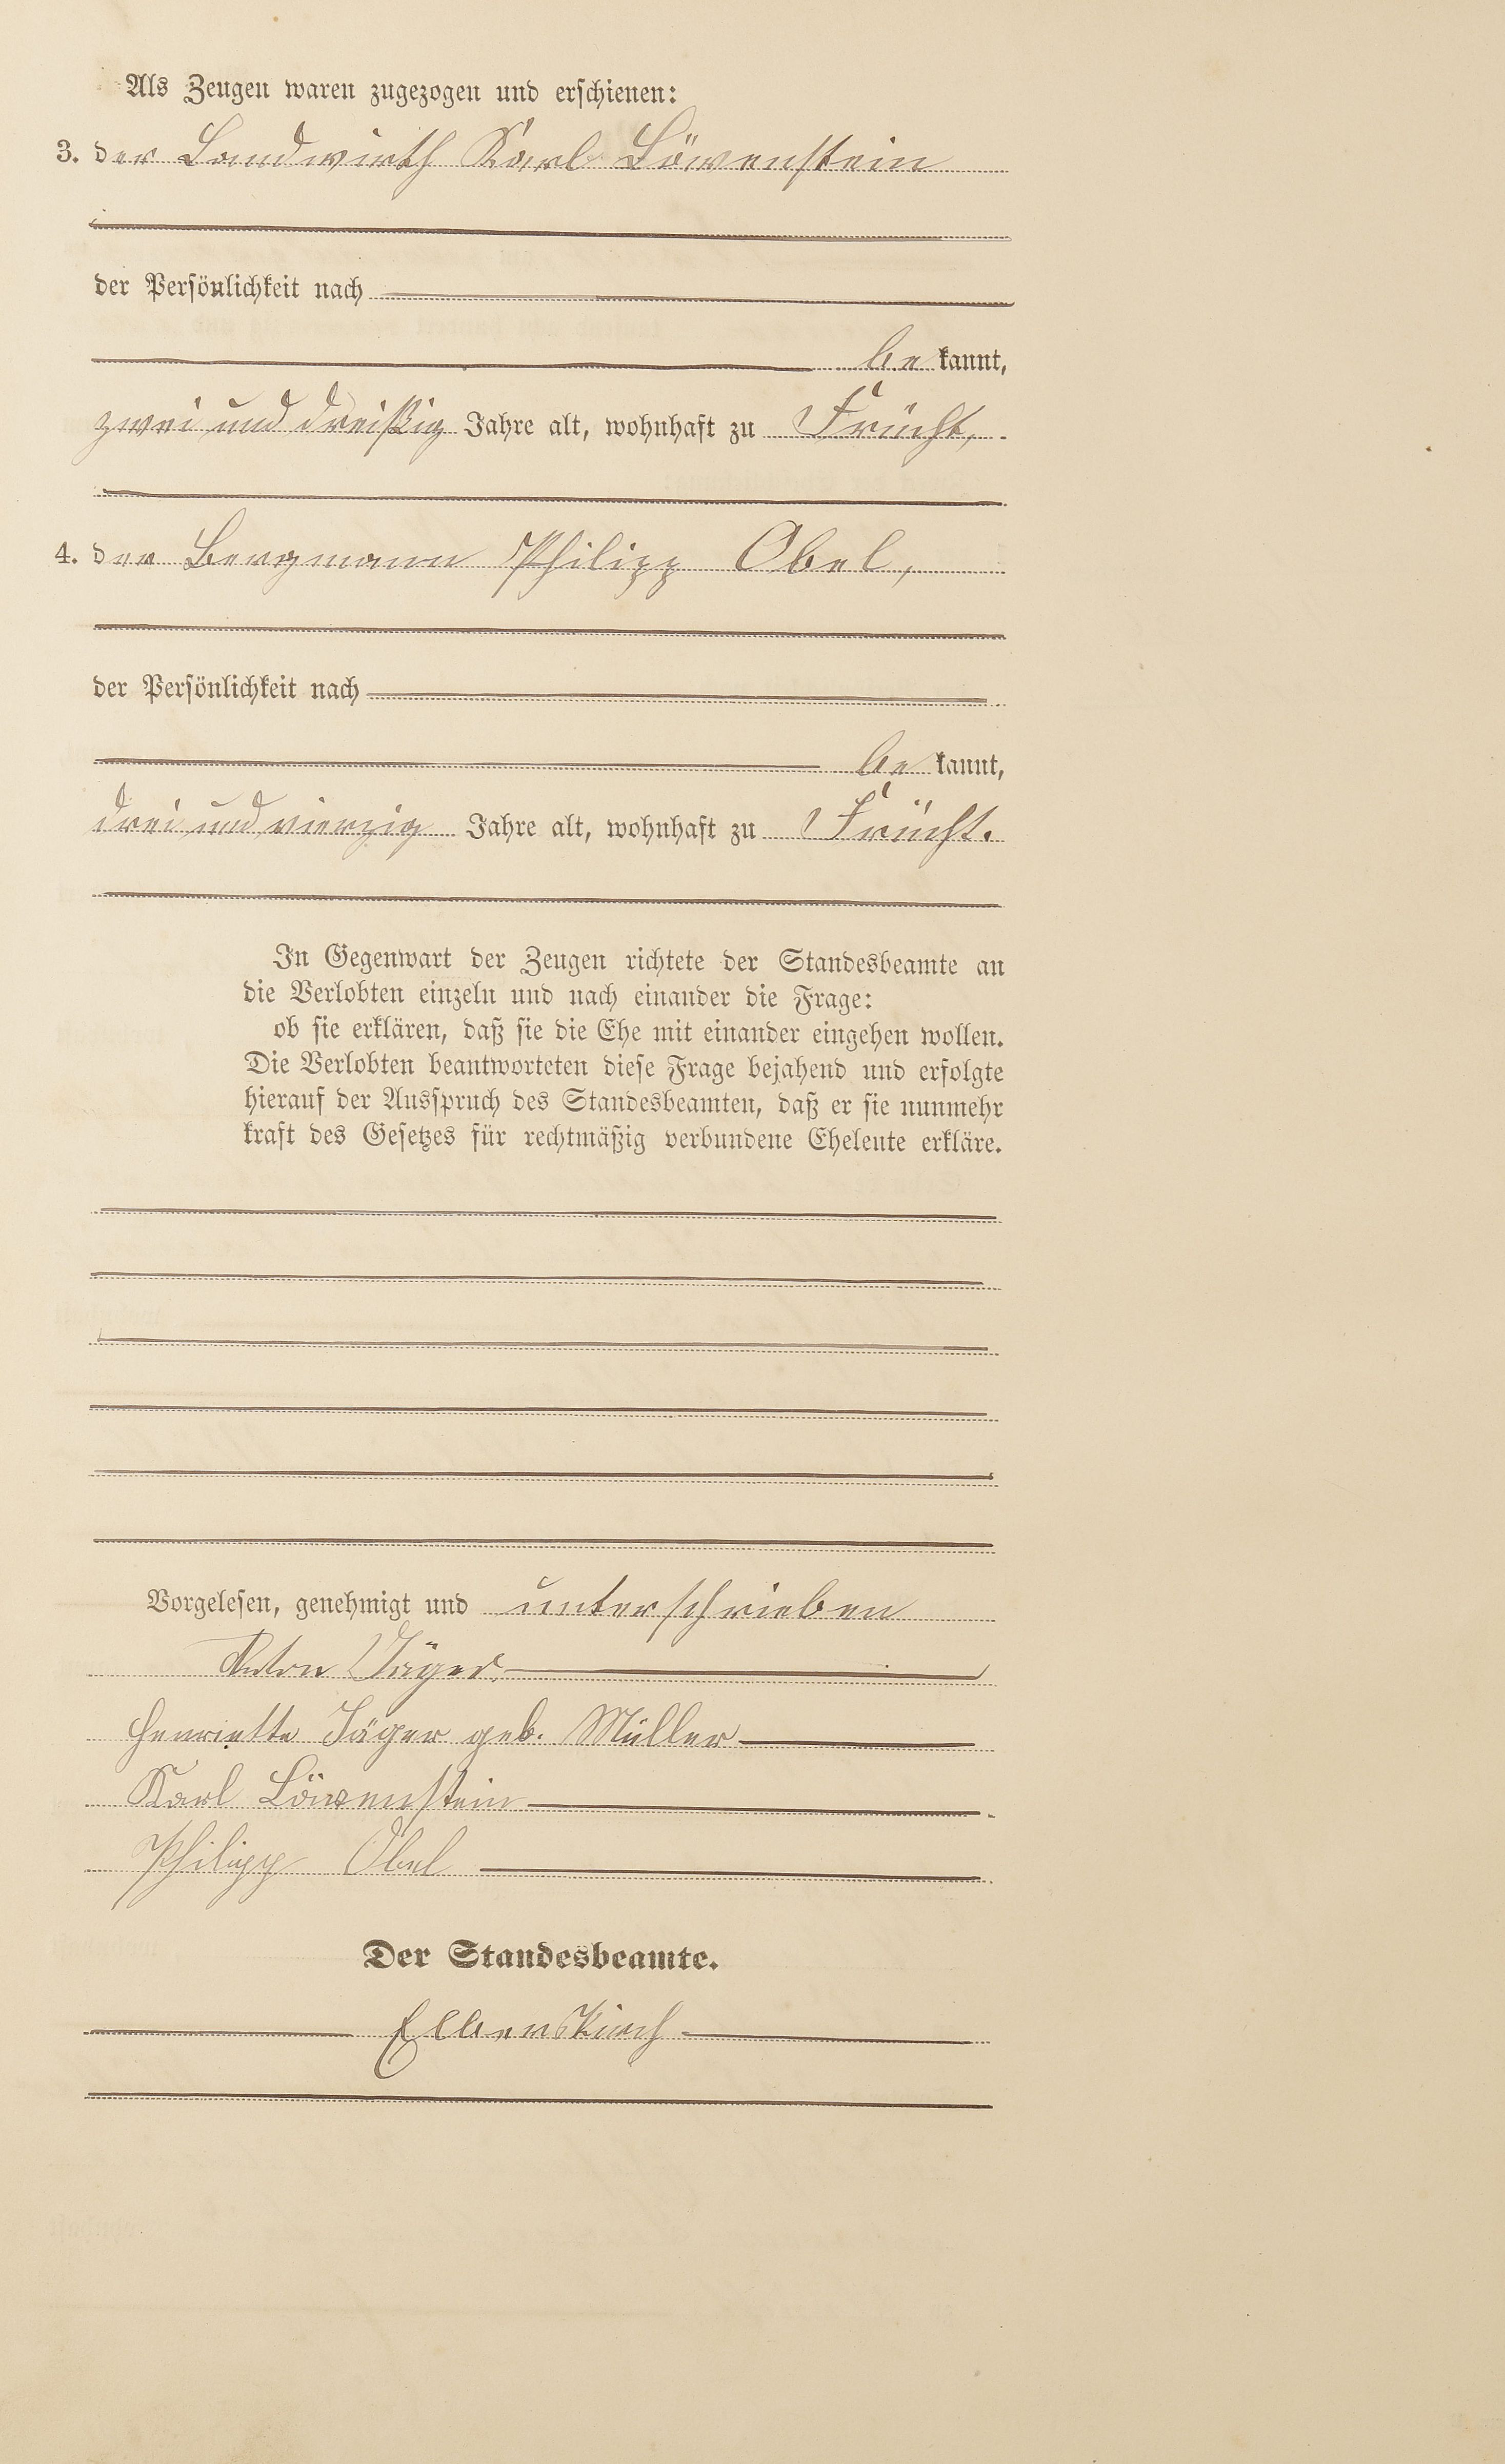 Als Zeugen waren zugezogen und erschienen:
3. der Landwirth Karl Löwenstein
der Persönlichkeit nach
bekannt,
zwei und dreißig Jahre alt, wohnhaft zu Frücht,
4. der Bergmann Philipp Obel,
der Persönlichkeit nach
bekannt,
drei und vierzig Jahre alt, wohnhaft zu Frücht.
In Gegenwart der Zeugen richtete der Standesbeamte an
die Verlobten einzeln und nach einander die Frage:
ob sie erklären, daß sie die Ehe mit einander eingehen wollen.
Die Verlobten beantworteten diese Frage bejahend und erfolgte
hierauf der Ausspruch des Standesbeamten, daß er sie nunmehr
kraft des Gesetzes für rechtmäßig verbundene Eheleute erkläre.
Vorgelesen, genehmigt und unterschrieben
Anton Jäger
Henriette Jäger geb. Müller
Karl Löwenstein
Philipp Obel
Der Standesbeamte.